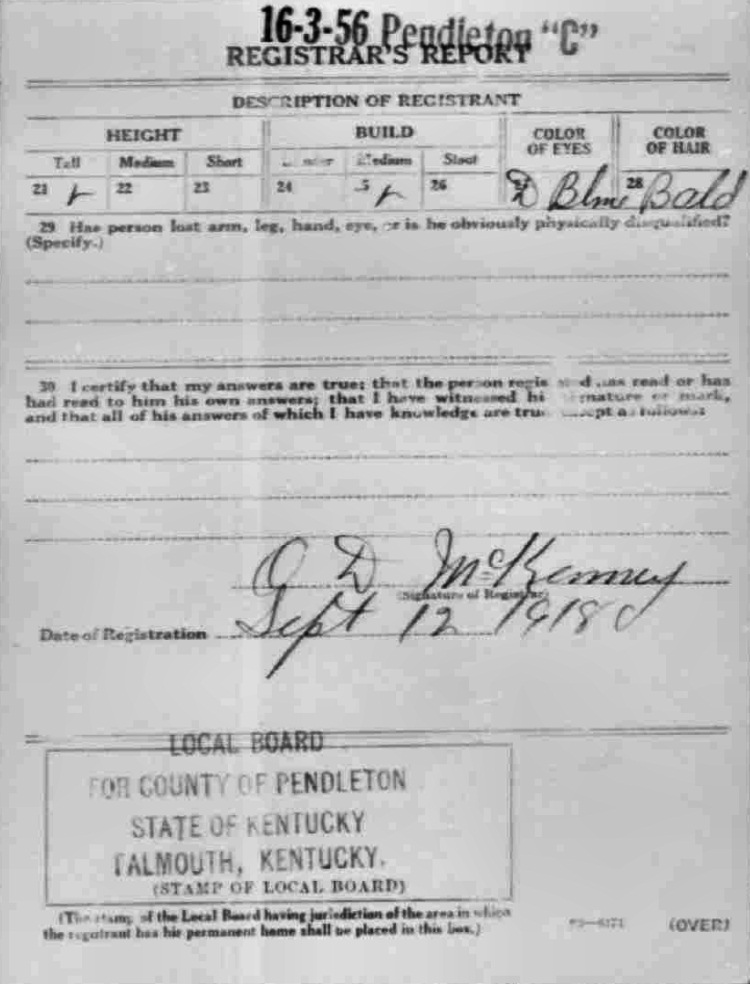 16-3-56 Pendleton "C"
REGISTRAR'S REPORT
DESCRIPTION OF REGISTRANT
HEIGHT BUILD COLOR OF EYES COLOR OF HAIR
Tall Medium Short Medium Stout
21 22 23 24 5 26 Blue 28 Bald
29 Has person lost arm, leg, hand, eye, or is he obviously physically disqualified?
(Specify.)
30 I certify that my answers are true; that the person has read or has
had read to him his own answers; that I have witnessed or mark,
and that all of his answers of which I have knowledge are as follows:
O D McKenney
(Signature of Registrar)
Date of Registration Sept 12 1918
LOCAL BOARD
FOR COUNTY OF PENDLETON
STATE OF KENTUCKY
FALMOUTH, KENTUCKY.
(STAMP OF LOCAL BOARD)
(The stamp of the Local Board having jurisdiction of the area in which
the registrant has his permanent home shall be placed in this box.)
(OVER)